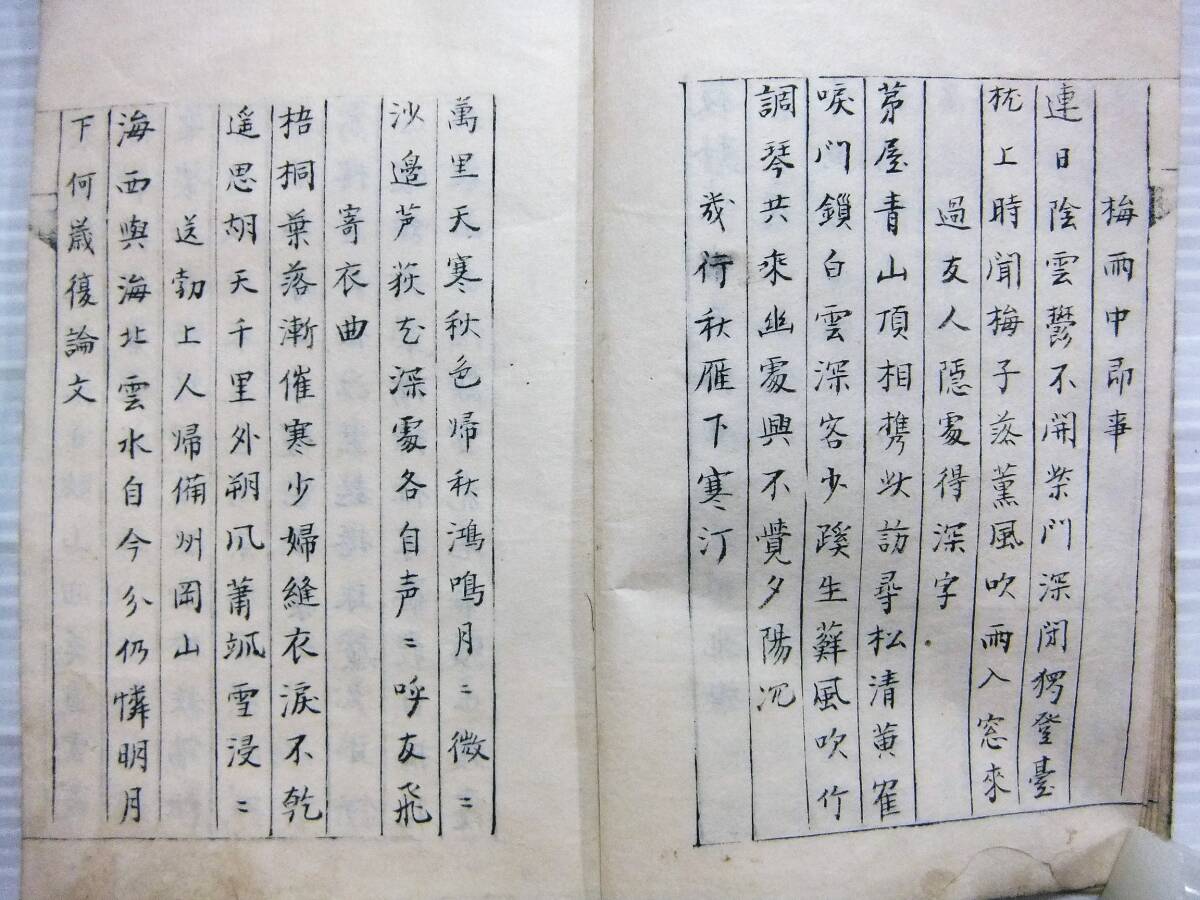 梅雨中即事
連日陰雲鬱不開柴門深閉獨登臺
枕上時聞梅子落薫風吹雨入窓來
過友人隠處得深字
茅屋青山頂相携此訪尋松清黄雀
唳門鎖白雲深客少蹊生蘚風吹竹
調琴共乘幽處興不覺夕陽沉
幾行秋雁下寒汀
萬里天寒秋色帰秋鴻鳴月〻微〻
沙邉芦荻花深處各自声〻呼友飛
寄衣曲
梧桐葉落漸催寒少婦縫衣淚不乾
遥思胡天千里外朔風蕭颯雪浸〻
送勃上人帰備州岡山
海西與海北雲水自今分仍憐明月
下何歳復論文